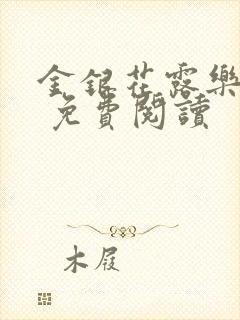 金銀花露樂
免費閱讀
木屐